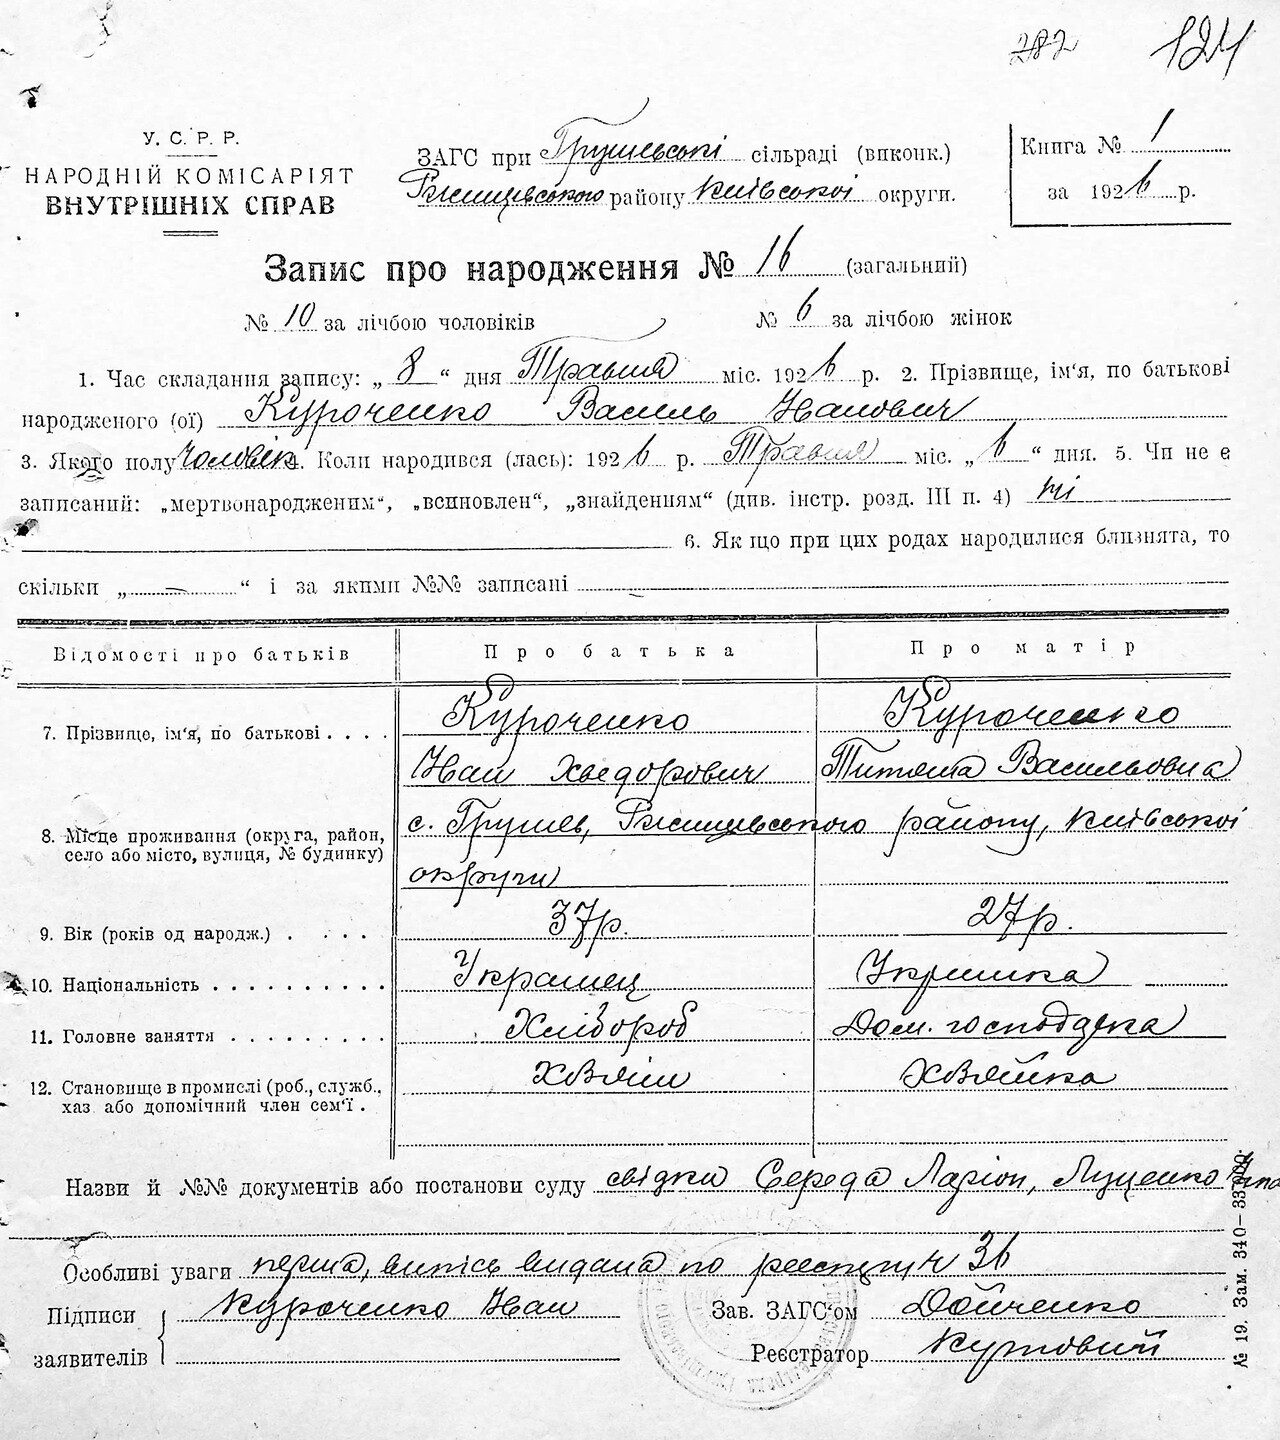 282 124
У. С. Р. Р.
НАРОДНІЙ КОМІСАРІЯТ
ВНУТРІШНІХ СПРАВ
ЗАГС при Грушевські сільраді (виконк.)
Ржищевського району Київської округи.
Книга № 1
за 1926 р.
Запис про народження № 16 (загальний)
№ 10 за лічбою чоловіків № 6 за лічбою жінок
1. Час складання запису: „ 8 “ дня Травня міс. 1926 р. 2. Прізвище, ім'я, по батькові
народженого (ої) Куроченко Василь Иванович
3. Якого полу Чоловік 4. Коли народився (лась): 1926 р. Травня міс. „ 6 “ дня. 5. Чи не є
записаний: „мертвонародженим“, „всиновлен“, „знайденням“ (див. інстр. розд. III п. 4) ні
6. Як що при цих родах народилися близнята, то
скільки „ — “ і за якими №№ записані
Відомості про батьків Про батька Про матір
7. Прізвище, ім'я, по батькові . . . . Куроченко Куроченко
Иван Хведорович Титяна Васильовна
8. Місце проживання (округа, район,
село або місто, вулиця, № будинку)
с. Грушев, Ржищевського району, Київської
округи
9. Вік (років од народж.) . . . . 37р. 27р.
10. Національність . . . . . . . . . . Украінец Укрінка
11. Головне заняття . . . . . . . . . Хлібороб Дом. господарка
12. Становище в промислі (роб., служб.,
хаз або допомічний член сем'ї .
Хвзяїн Хвзяйка
Назви й №№ документів або постанови суду свідки Середа Ларіон, Луценко
Особливі уваги перша, випись видана по реєстру ч 36
Підписи
заявителів
Куроченко Иван
Зав. ЗАГС'ом Дойченко
Реєстратор Кутовий
№ 19. Зам. 340—33000.